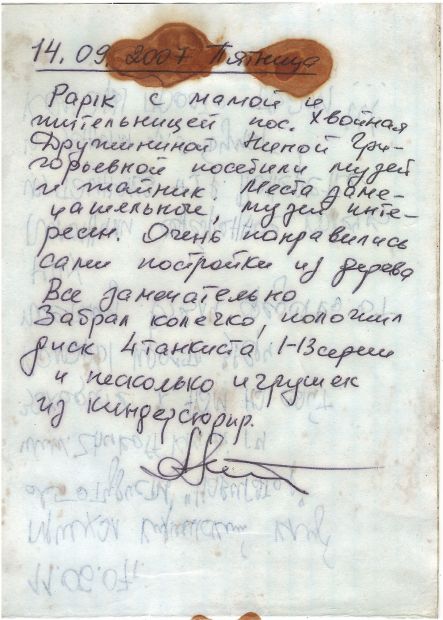 14.09.2007 Пятница
Рарік с мамой и
жительницей пос. Хвойная
Дружининой Ниной Гри-
горьевной посетили музей
и тайник. Места заме-
чательные, музей инте-
ресен. Очень понравились
сами постройки из дерева
Все замечательно
Забрал колечко, положил
диск 4 танкиста 1-13 серии
и несколько игрушек
из киндерсюрпр.